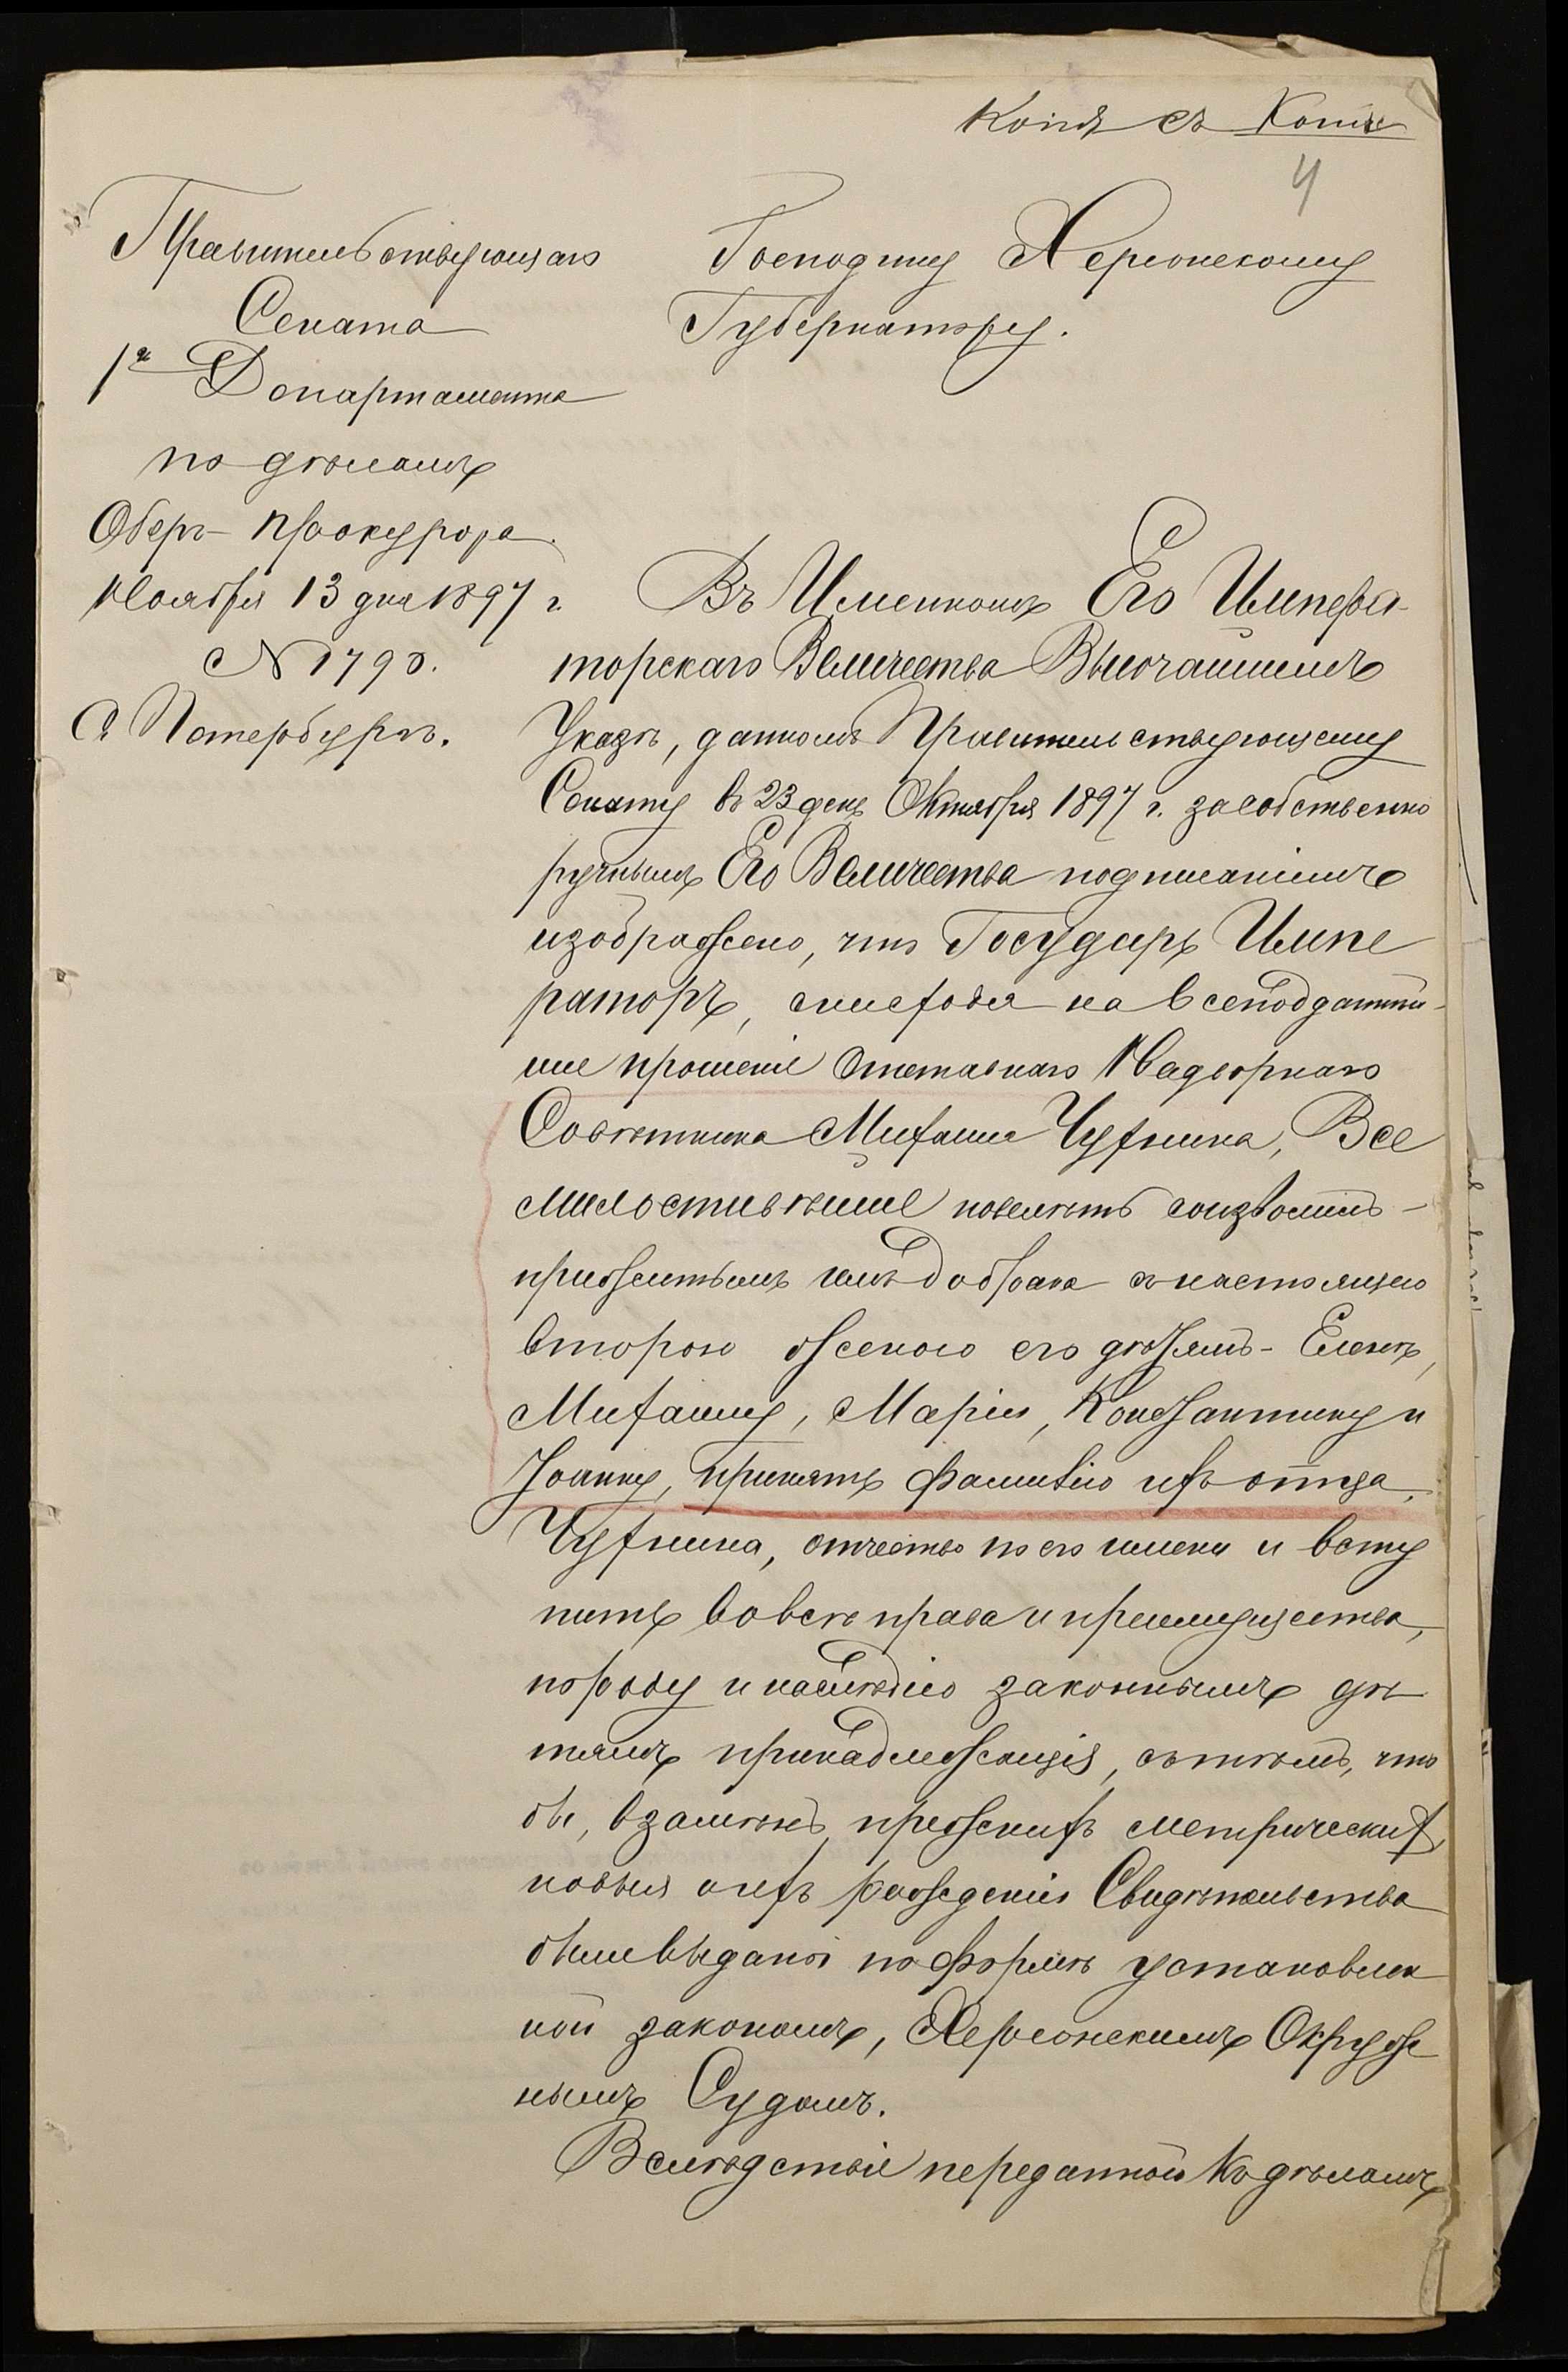 Копія съ Копіи
4
Правительствующаго
Сената
1го Департамента
по дѣламъ
Оберъ-Прокурора.
Ноября 13 дня 1897 г.
№ 1790.
С Петербургъ.
Господину Херсонскому
Губернатору.
Въ Именномъ Его Импера-
торскаго Величества Высочайшемъ
Указѣ, данномъ Правительствующему
Сенату въ 23 день Октября 1897 г. за собственно
ручнымъ Его Величества подписаніемъ
изображено, что Государь Импе
раторъ, снисходя на всеподданнѣй-
шее прошеніе Отставнаго Надворнаго
Совѣтника Михаила Чухнина, Все
милостивѣйше повелѣть соизволилъ -
прижитымъ имъ до брака съ настоящею
второю женою его дѣтямъ - Еленѣ,
Михаилу, Маріи, Константину и
Іоанну, принять фамилію ихъ отца,
Чухнина, отчество по его имени и всту
пить во всѣ права и преимущества,
по роду и наслѣдію законнымъ дѣ
тямъ принадлежащія, съ тѣмъ, что
бы, взамѣнъ прежнихъ метрическихъ,
новыя о ихъ рожденіи Свидѣтельства
были выданы по формѣ установлен
ной закономъ, Херсонскимъ Окруж
нымъ Судомъ.
Вслѣдствіе переданной къ дѣламъ